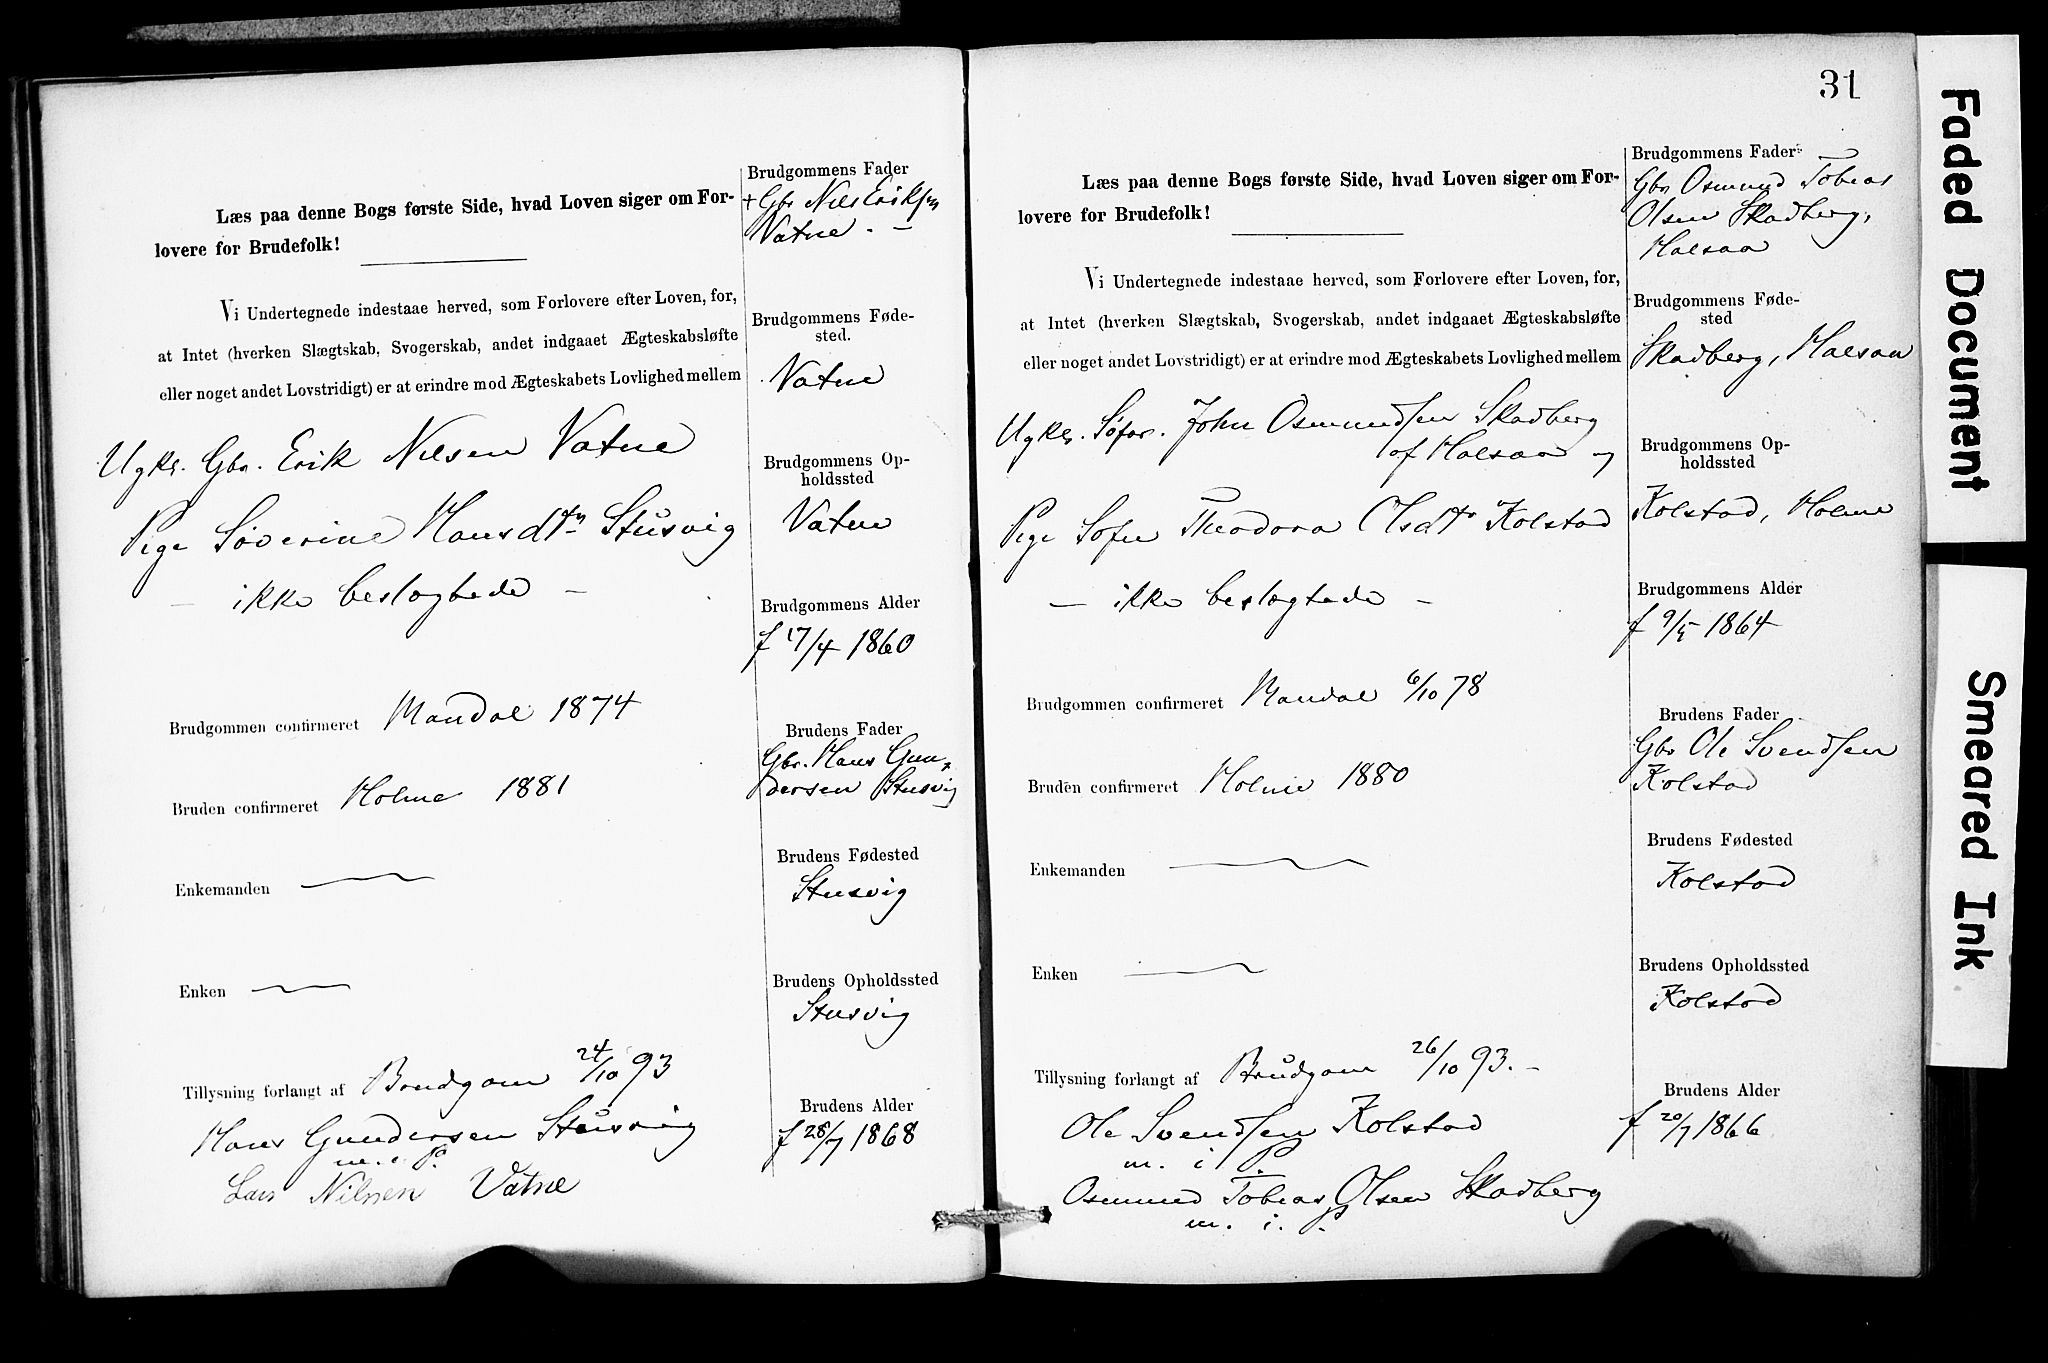 Læs paa denne Bogs første Side, hvad Loven siger om For-
lovere for Brudefolk!
Vi Undertegnede indestaae herved, som Forlovere efter Loven, for,
at Intet (hverken Slægtskab, Svogerskab, andet indgaaet Ægteskabsløfte
eller noget andet Lovstridigt) er at erindre mod Ægteskabets Lovlighed mellem
Ugkl. Gbr. Erik Nilsen Vatne
Pige Søverine Hansdtr Stusvig
- ikke beslægtede -
Brudgommen confirmeret Mandal 1874
Bruden confirmeret Holme 1881
Enkemanden
Enken
Tillysning forlangt af Brudgom 24/10 93
Hans Gundersen Stusvig
m. i P.
Lars Nilsen Vatne
Brudgommens Fader
+ Gbr Nils Eriksen
Vatne. -
Brudgommens Føde-
sted.
Vatne
Brudgommens Op-
holdssted
Vatne
Brudgommens Alder
f 17/4 1860
Brudens Fader
Gbr. Hans Gun-
dersen Stusvig
Brudens Fødested
Stusvig
Brudens Opholdssted
Stusvig
Brudens Alder
f 28/7 1868
31
Læs paa denne Bogs første Side, hvad Loven siger om For-
lovere for Brudefolk!
Vi Undertegnede indestaae herved, som Forlovere efter Loven, for,
at Intet (hverken Slægtskab, Svogerskab, andet indgaaet Ægteskabsløfte
eller noget andet Lovstridigt) er at erindre mod Ægteskabets Lovlighed mellem
Ugkl. Søfar. John Osmundsen Skadberg
af Halsaa og
Pige Sofie Theodora Olsdtr Kolstad
- ikke beslægtede -
Brudgommen confirmeret Mandal 6/10 78
Bruden confirmeret Holme 1880
Enkemanden
Enken
Tillysning forlangt af Brudgom 26/10 93. -
Ole Svendsen Kolstad
m. i P.
Osmund Tobias Olsen Skadberg
m. i. P.
Brudgommens Fader
Gbr Osmund Tobias
Olsen Skadberg,
Halsaa
Brudgommens Føde-
sted
Skadberg, Halsaa
Brudgommens Op-
holdssted
Kolstad, Holme
Brudgommens Alder
f 9/5 1864
Brudens Fader
Gbr Ole Svendsen
Kolstad
Brudens Fødested
Kolstad
Brudens Opholdssted
Kolstad
Brudens Alder
f 20/7 1866
Faded Document
Smeared Ink